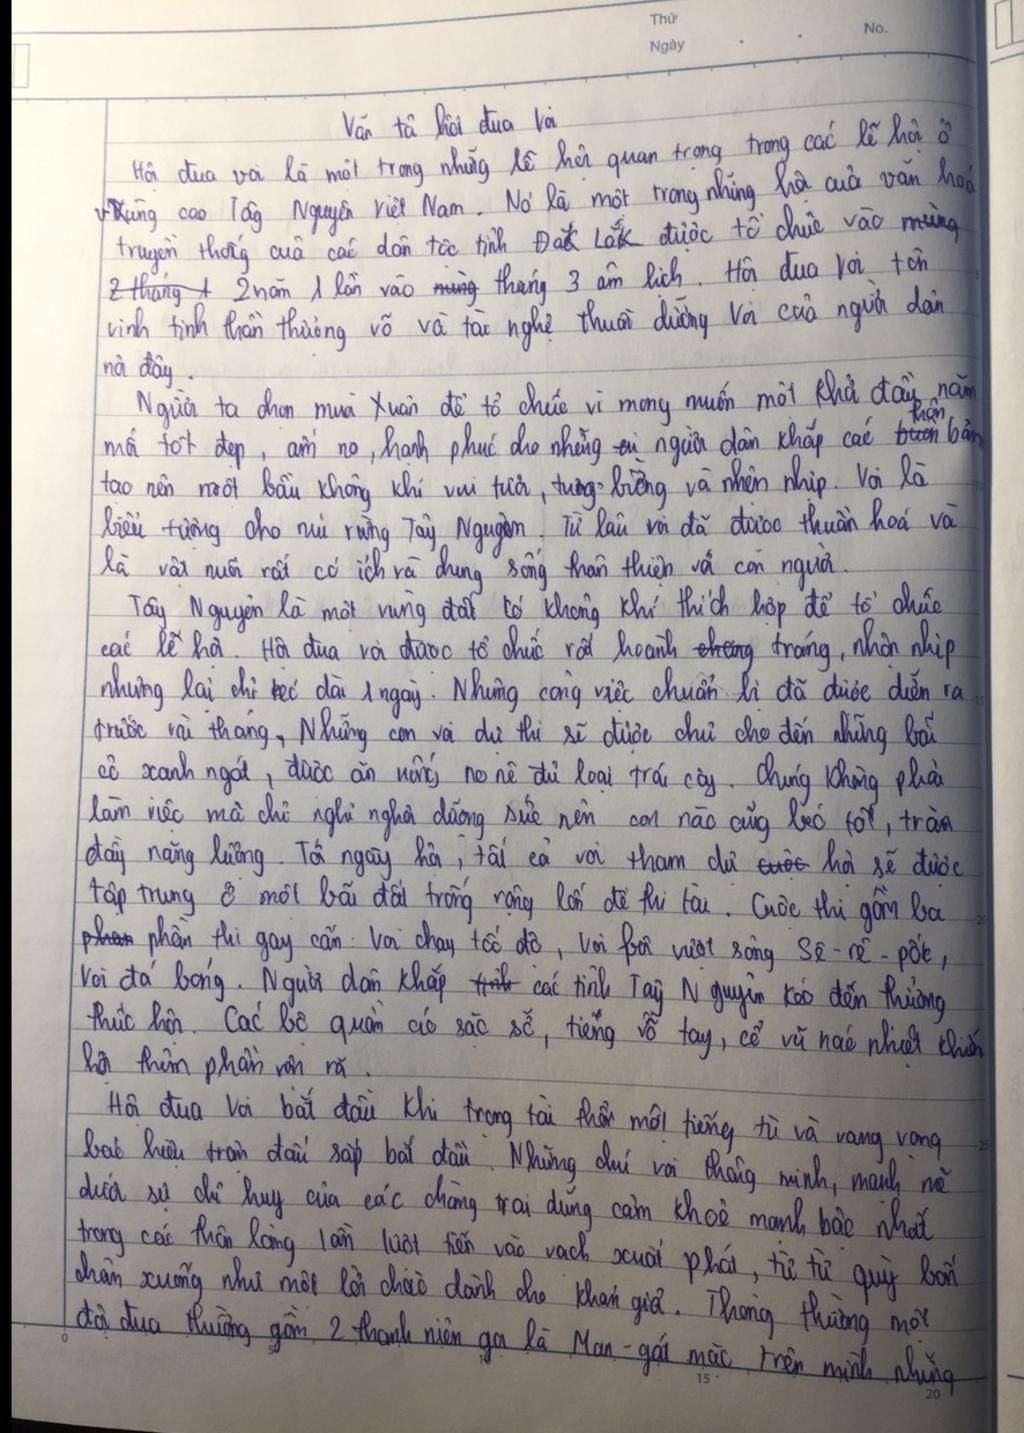 Thứ
Ngày
No.
Văn tả hội đua voi
Hội đua voi là một trong những lễ hội quan trọng trong các lễ hội ở
vùng cao Tây Nguyên Việt Nam. Nó là một trong những hội của văn hoá
truyền thống của các dân tộc tỉnh Đắk Lắk được tổ chức vào mùng
2 tháng 1 2 năm 1 lần vào mùng tháng 3 âm lịch. Hội đua voi tôn
vinh tinh thần thượng võ và tài nghệ thuần dưỡng voi của người dân
nơi đây.
Người ta chọn mùa Xuân để tổ chức vì mong muốn một khởi đầu năm
mới tốt đẹp, ấm no, hạnh phúc cho những người dân khắp các buôn thôn bản
tạo nên một bầu không khí vui tươi, tưng bừng và nhộn nhịp. Voi là
biểu tượng cho núi rừng Tây Nguyên. Từ lâu voi đã được thuần hoá và
là vật nuôi rất có ích và chung sống thân thiện với con người.
Tây Nguyên là một vùng đất có không khí thích hợp để tổ chức
các lễ hội. Hội đua voi được tổ chức rất hoành tráng, nhộn nhịp
nhưng lại chỉ kéo dài 1 ngày. Nhưng công việc chuẩn bị đã được diễn ra
trước vài tháng, Những con voi dự thi sẽ được chủ cho đến những bãi
cỏ xanh ngát, được ăn uống no nê đủ loại trái cây. Chúng không phải
làm việc mà chỉ nghỉ ngơi dưỡng sức nên con nào cũng béo tốt, tràn
đầy năng lượng. Tới ngày hội, tất cả voi tham dự cuộc hội sẽ được
tập trung ở một bãi đất trống rộng lớn để thi tài. Cuộc thi gồm ba
phần phần thi gay cấn: Voi chạy tốc độ, voi bơi vượt sông Sê-rê-pốk,
voi đá bóng. Người dân khắp tỉnh các tỉnh Tây Nguyên kéo đến thưởng
thức hội. Các bộ quần áo sặc sỡ, tiếng vỗ tay, cổ vũ náo nhiệt khiến
hội thêm phần rộn rã.
Hội đua voi bắt đầu khi trọng tài thổi một tiếng tù và vang vọng
báo hiệu trận đấu sắp bắt đầu. Những chú voi thông minh, mạnh mẽ
dưới sự chỉ huy của các chàng trai dũng cảm khoẻ mạnh bậc nhất
trong các thôn làng lần lượt tiến vào vạch xuất phát, từ từ quỳ bốn
chân xuống như một lời chào dành cho khán giả. Thông thường một
đội đua thường gồm 2 thanh niên gọi là Man-gát mặc trên mình những
15
20